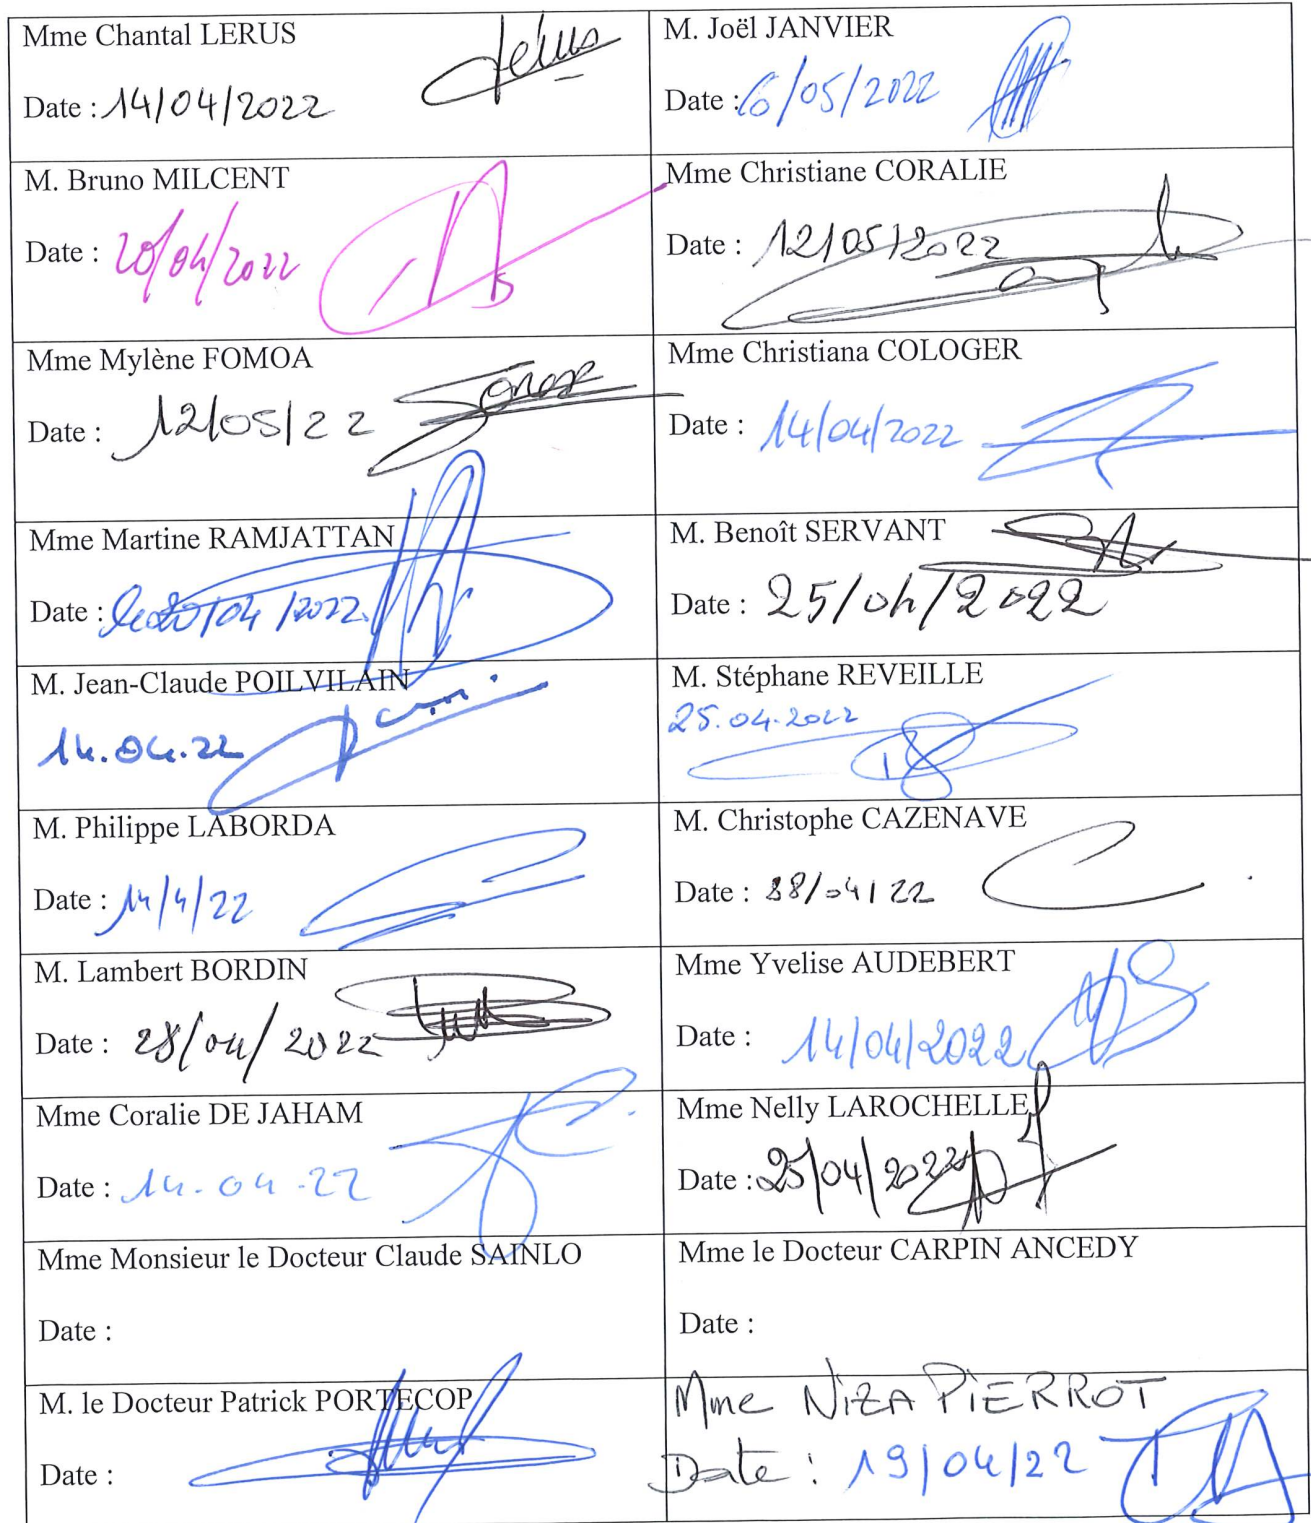 Mme Chantal LERUS
Date : 14/04/2022
M. Joël JANVIER
Date : 6/05/2022
M. Bruno MILCENT
Date : 20/04/2022
Mme Christiane CORALIE
Date : 12/05/2022
Mme Mylène FOMOA
Date : 12/05/22
Mme Christiana COLOGER
Date : 14/04/2022
Mme Martine RAMJATTAN
Date : le 20/04/2022
M. Benoît SERVANT
Date : 25/04/2022
M. Jean-Claude POILVILAIN
14.04.22
M. Stéphane REVEILLE
25.04.2022
M. Philippe LABORDA
Date : 14/4/22
M. Christophe CAZENAVE
Date : /04/22
M. Lambert BORDIN
Date : 28/04/2022
Mme Yvelise AUDEBERT
Date : 14/04/2022
Mme Coralie DE JAHAM
Date : 14.04.22
Mme Nelly LAROCHELLE
Date : 25/04/2022
Mme Monsieur le Docteur Claude SAINLO
Date :
Mme le Docteur CARPIN ANCEDY
Date :
M. le Docteur Patrick PORTECOP
Date :
Mme NIZA PIERROT
Date : 19/04/22